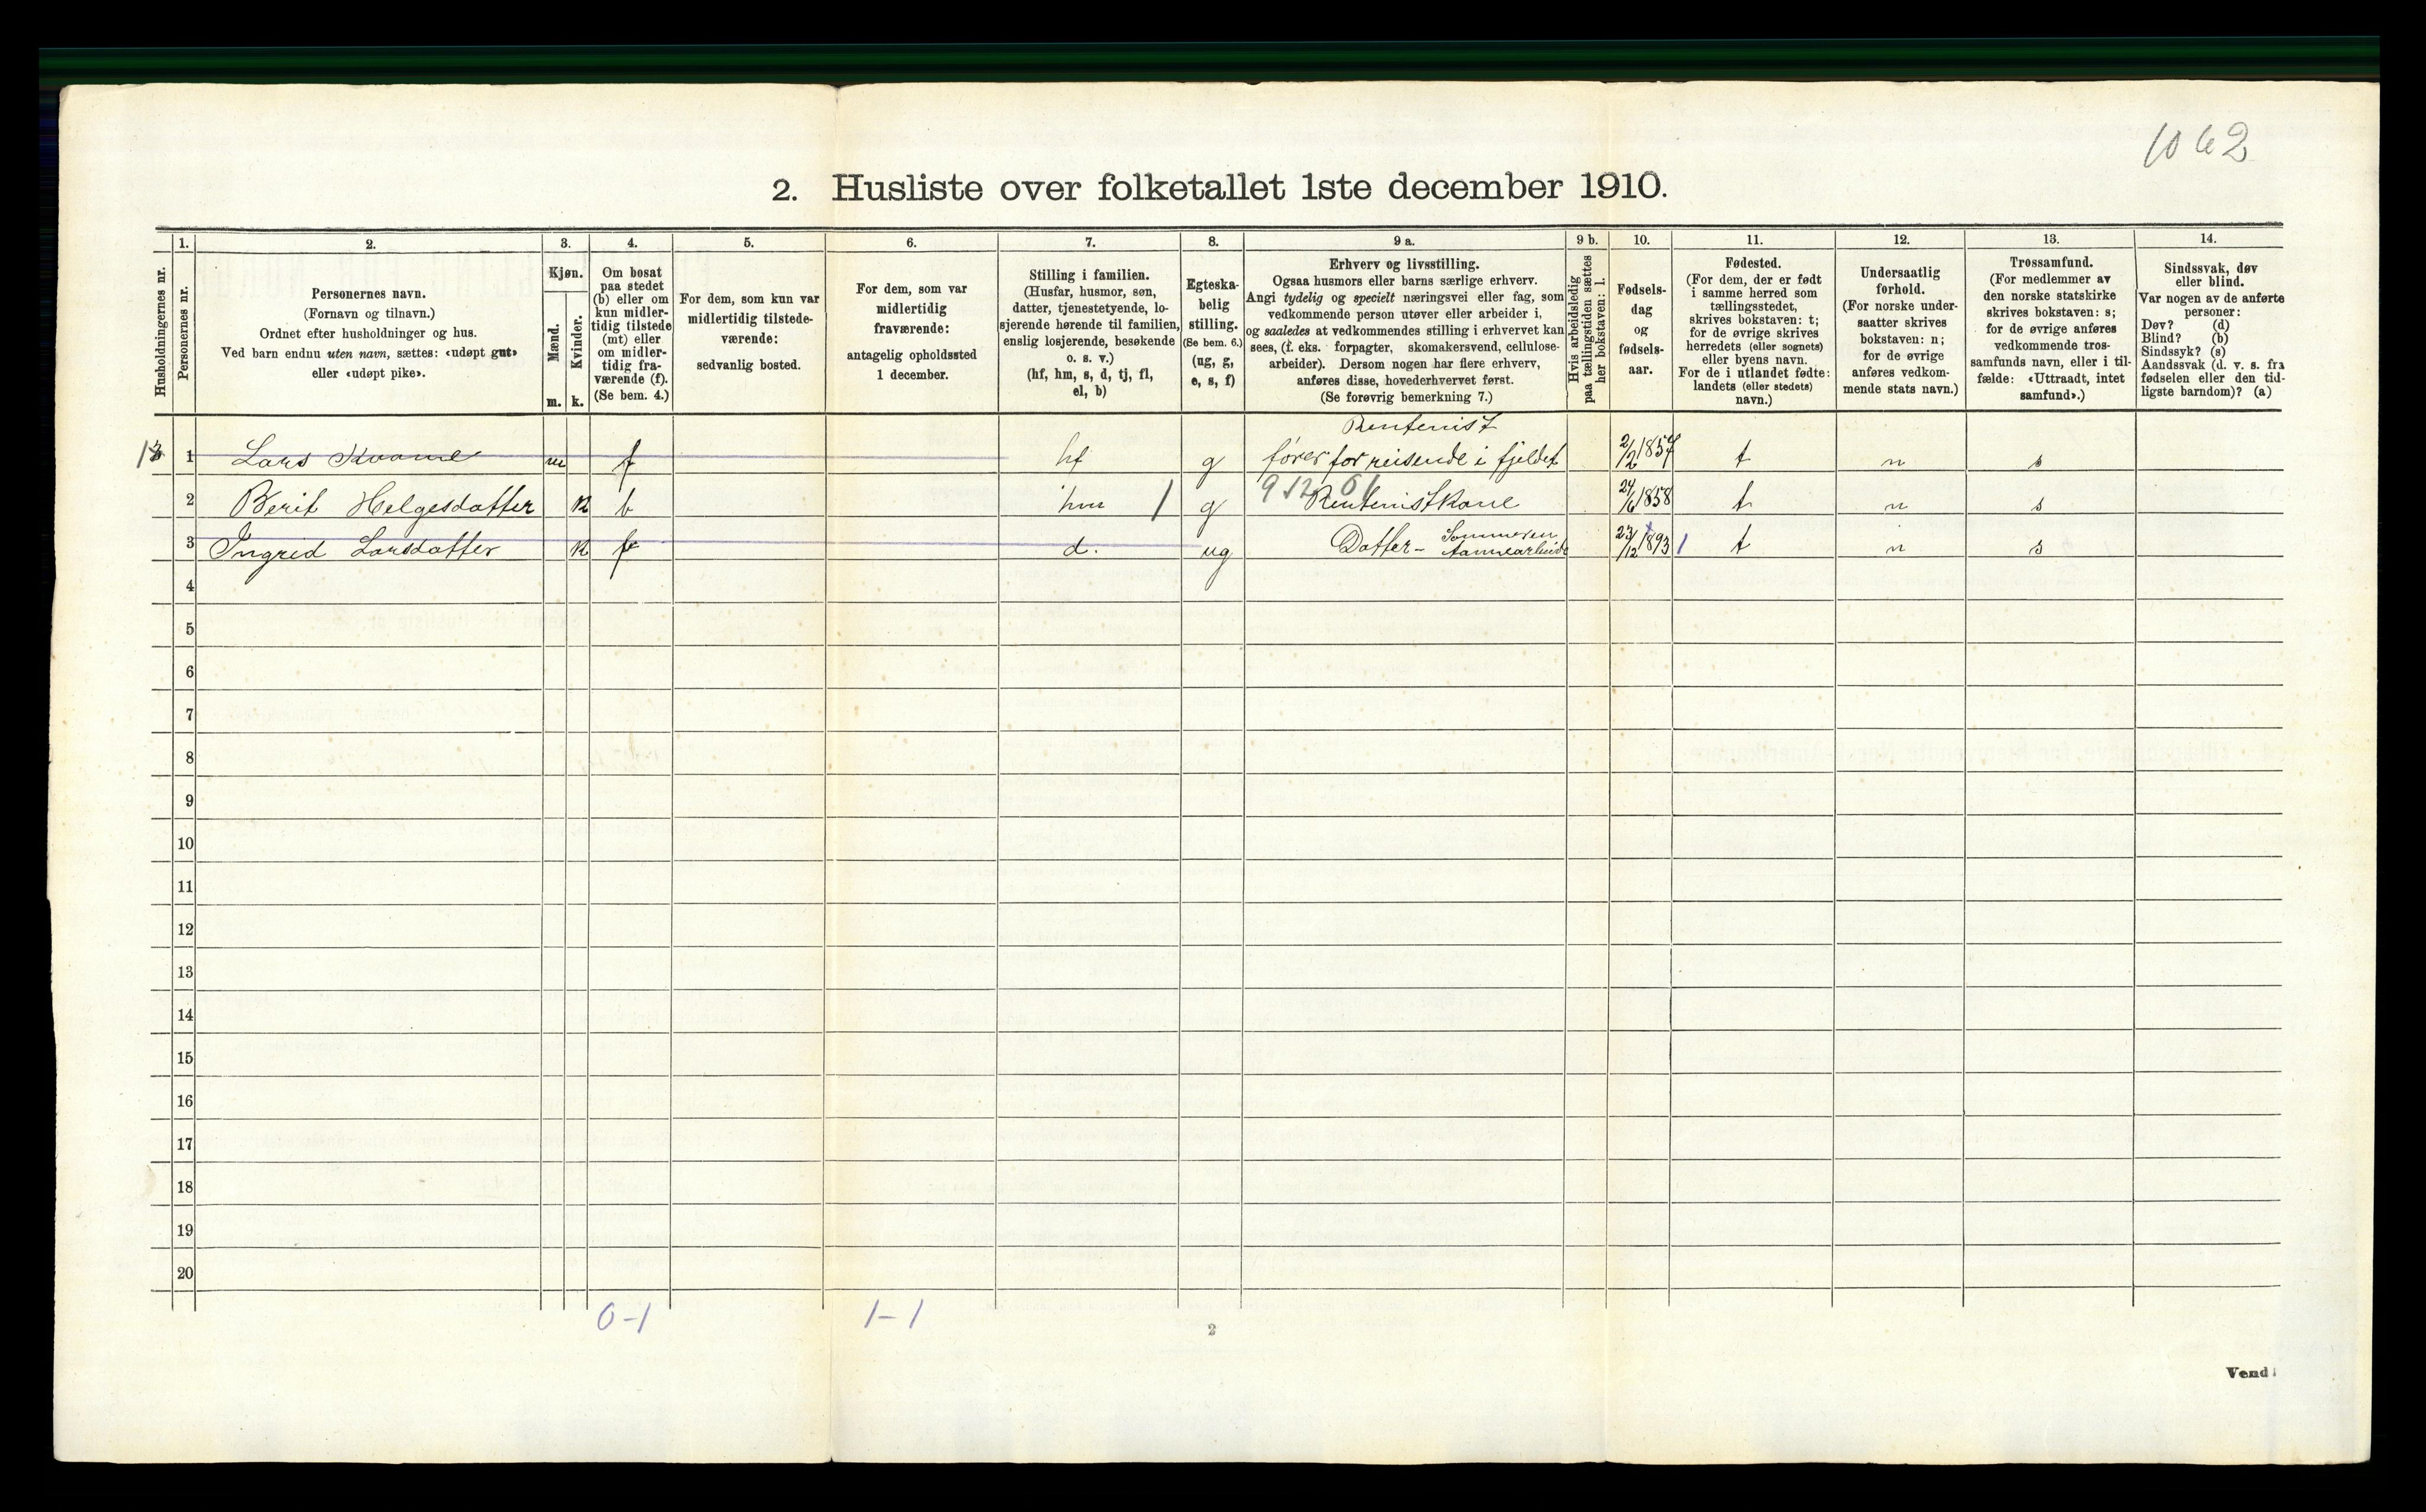 1062
2. Husliste over folketallet 1ste december 1910.
Husholdningernes nr.
1.
Personernes nr.
2.
Personernes navn.
(Fornavn og tilnavn.)
Ordnet efter husholdninger og hus.
Ved barn endnu uten navn, sættes: «udøpt gut»
eller «udøpt pike».
3.
Kjøn.
Mænd.
m.
Kvinder.
k.
4.
Om bosat
paa stedet
(b) eller om
kun midler-
tidig tilstede
(mt) eller
om midler-
tidig fra-
værende (f).
(Se bem. 4.)
5.
For dem, som kun var
midlertidig tilstede-
værende:
sedvanlig bosted.
6.
For dem, som var
midlertidig
fraværende:
antagelig opholdssted
1 december.
7.
Stilling i familien.
(Husfar, husmor, søn,
datter, tjenestetyende, lo-
sjerende hørende til familien,
enslig losjerende, besøkende
o. s. v.)
(hf, hm, s, d, tj, fl,
el, b)
8.
Egteska-
belig
stilling.
(Se bem. 6.)
(ug, g,
e, s, f)
9 a.
Erhverv og livsstilling.
Ogsaa husmors eller barns særlige erhverv.
Angi tydelig og specielt næringsvei eller fag, som
vedkommende person utøver eller arbeider i,
og saaledes at vedkommendes stilling i erhvervet kan
sees, (f. eks. forpagter, skomakersvend, cellulose-
arbeider). Dersom nogen har flere erhverv,
anføres disse, hovederhvervet først.
(Se forøvrig bemerkning 7.)
9 b.
Hvis arbeidsledig
paa tællingstiden sættes
her bokstaven: l.
10.
Fødsels-
dag
og
fødsels-
aar.
11.
Fødested.
(For dem, der er født
i samme herred som
tællingsstedet,
skrives bokstaven: t;
for de øvrige skrives
herredets (eller sognets)
eller byens navn.
For de i utlandet fødte:
landets (eller stedets)
navn.)
12.
Undersaatlig
forhold.
(For norske under-
saatter skrives
bokstaven: n;
for de øvrige
anføres vedkom-
mende stats navn.)
13.
Trossamfund.
(For medlemmer av
den norske statskirke
skrives bokstaven: s;
for de øvrige anføres
vedkommende tros-
samfunds navn, eller i til-
fælde: «Uttraadt, intet
samfund».)
14.
Sindssvak, døv
eller blind.
Var nogen av de anførte
personer:
Døv? (d)
Blind? (b)
Sindssyk? (s)
Aandssvak (d. v. s. fra
fødselen eller den tid-
ligste barndom)? (a)
Rentenist
1 Lars Kvame m f hf g fører for reisende i fjeldet 2/2 1857 t n s
2 Berit Helgesdatter k b hm g Rentenistkone 24/6 1858 t n s
3 Ingrid Larsdatter k f d. ug Datter- Sommeren 23/12 1893 t n s
4
5
6
7
8
9
10
11
12
13
14
15
16
17
18
19
20
0-1 1-1
2
Vend!